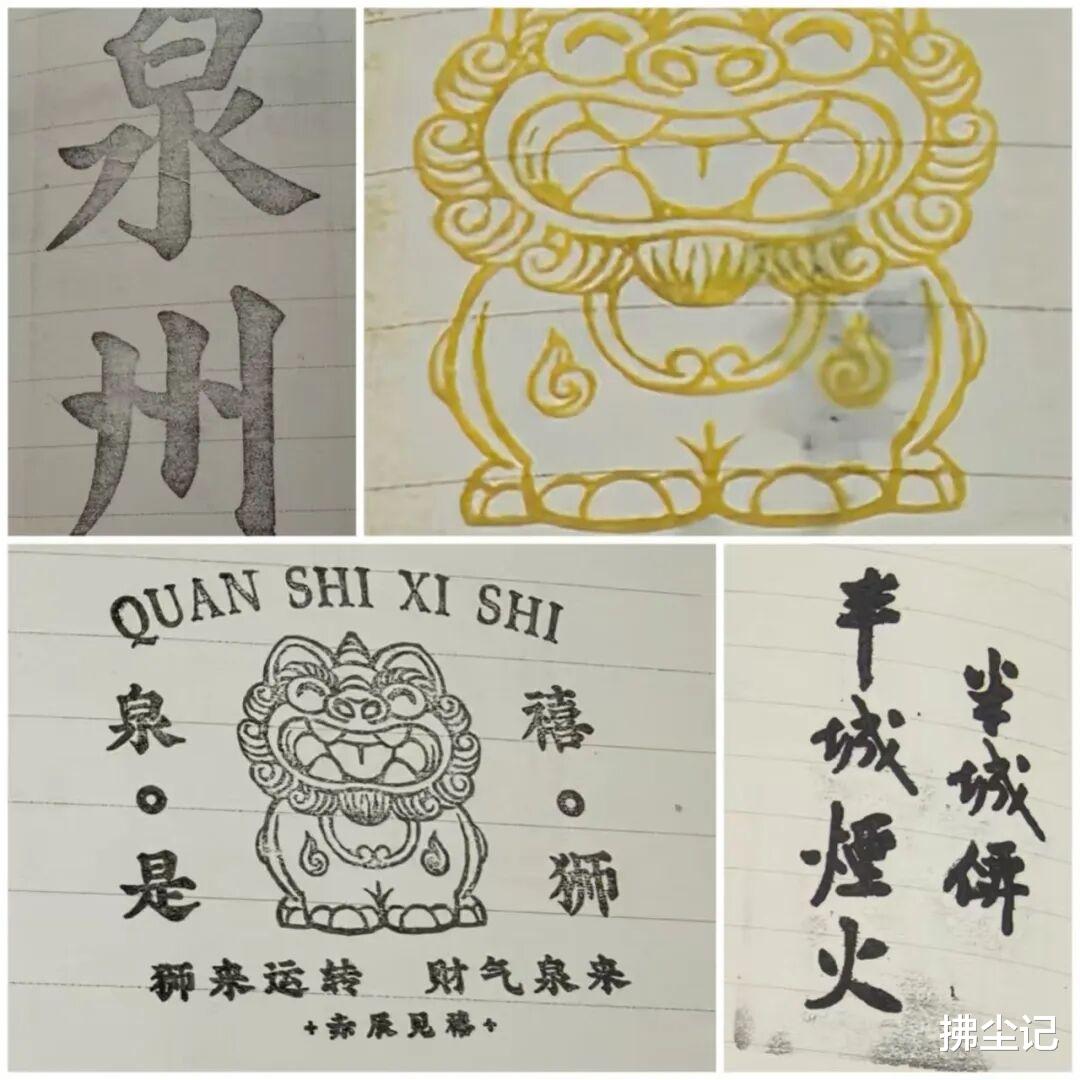 泉州
QUAN SHI XI SHI
泉·是
禧·狮
狮来运转 财气泉来
见禧
半城煙火
半城
拂尘记